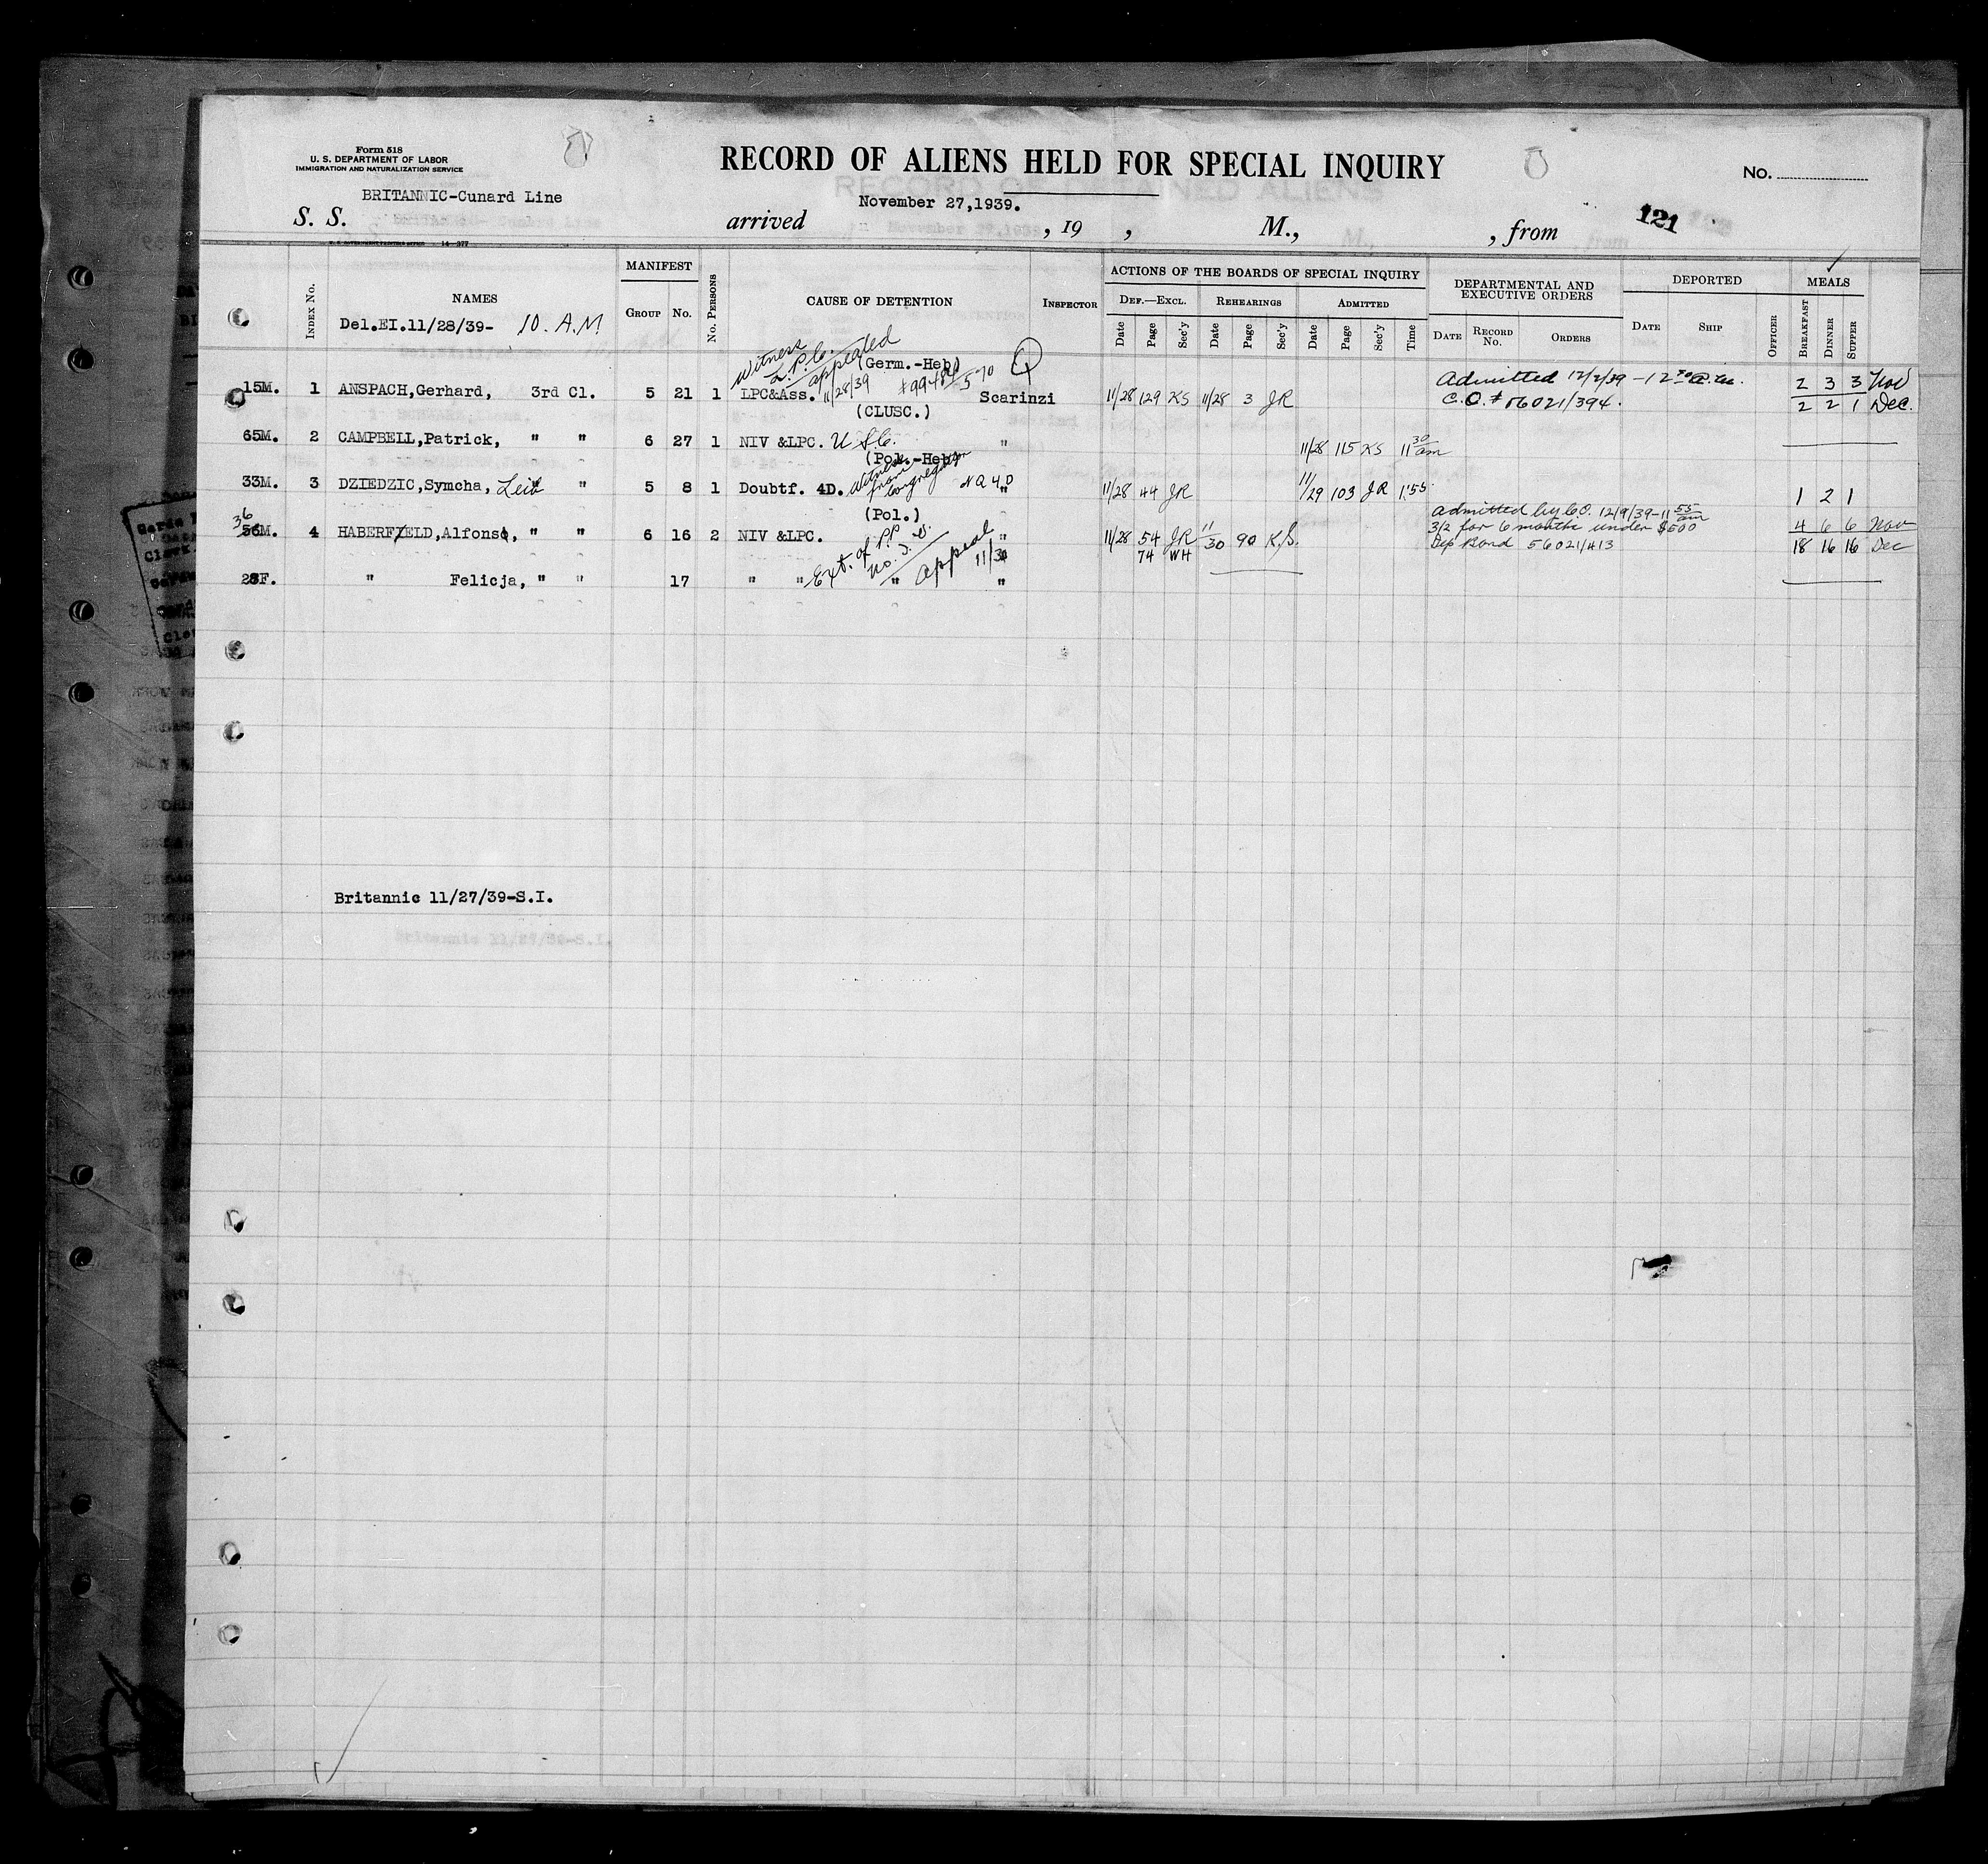 Form 518
U. S. DEPARTMENT OF LABOR
IMMIGRATION AND NATURALIZATION SERVICE
RECORD OF ALIENS HELD FOR SPECIAL INQUIRY
No.
BRITANNIC-Cunard Line
S. S.
arrived November 27,1939. , 19 , M., , from
121
U. S. GOVERNMENT PRINTING OFFICE 14-377
INDEX No. NAMES MANIFEST GROUP No. No. PERSONS CAUSE OF DETENTION INSPECTOR
ACTIONS OF THE BOARDS OF SPECIAL INQUIRY
DEF.—EXCL. REHEARINGS ADMITTED
Date Page Sec'y Date Page Sec'y Date Page Sec'y Time
DEPARTMENTAL AND EXECUTIVE ORDERS
DATE RECORD No. ORDERS
DEPORTED
DATE SHIP OFFICER
MEALS
BREAKFAST DINNER SUPPER
Del.EI.11/28/39- 10. A.M
Witness
L.P.C.
appealed
(Germ.-Heb)
15M. 1 ANSPACH,Gerhard, 3rd Cl. 5 21 1 LPC&Ass. 11/28/39 Scarinzi 11/28 129 KS 11/28 3 JR Admitted 12/2/39 - 12 30 a.m. 2 3 3 Nov
C.O. # 56021/394. 2 2 1 Dec.
(CLUSC.)
65M. 2 CAMPBELL,Patrick, " " 6 27 1 NIV &LPC. " 11/28 115 KS 11 30 am
(Pol.-Heb)
33M. 3 DZIEDZIC,Symcha, Leib " " 5 8 1 Doubtf. 4D. witness from congregation " 11/28 44 JR 11/29 103 JR 1:55. 1 2 1
(Pol.)
36
56M. 4 HABERFIELD,Alfonso, " " 6 16 2 NIV &LPC. " 11/28 54 JR 11/30 90 K.S. 4 6 6 Nov
74 WH
admitted by C.O. 12/9/39-11 55 am
3/2 for 6 months under $500
Dep Bond 56021/413 18 16 16 Dec
Ext. of P.P.
no. J.D.
appeal 11/30
28F. " Felicja, " " 17 " " " "
Britannic 11/27/39-S.I.